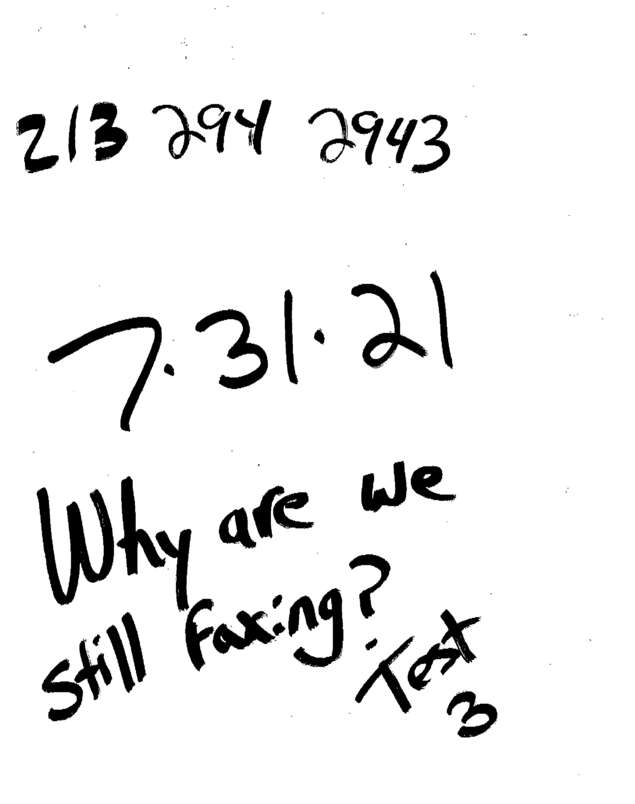 213 294 2943
7.31.21
Why are we
still faxing?
Test
3